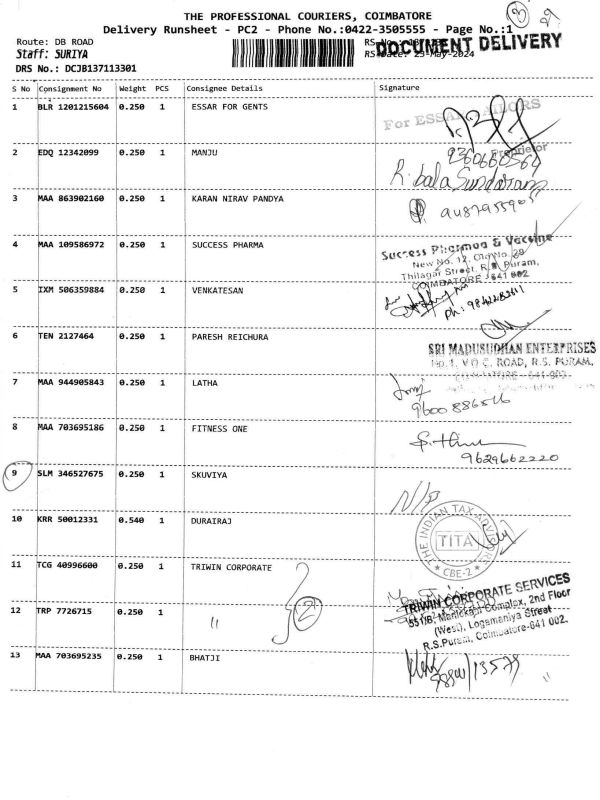 THE PROFESSIONAL COURIERS, COIMBATORE
Delivery Runsheet - PC2 - Phone No.:0422-3505555 - Page No.:1
3
29
Route: DB ROAD
DOCUMENT DELIVERY
Staff: SURIYA
RS Date: 23-May-2024
DRS No.: DCJB137113301
S No Consignment No Weight PCS Consignee Details Signature
1 BLR 1201215604 0.250 1 ESSAR FOR GENTS
For ESSAR TAILORS
Proprietor
2 EDQ 12342099 0.250 1 MANJU
R. bala Sundaram
3 MAA 863902160 0.250 1 KARAN NIRAV PANDYA
4 MAA 109586972 0.250 1 SUCCESS PHARMA
Success Pharma & Vaccine
New No. 12, Old No. 29
Thilagar Street, R.S. Puram,
COIMBATORE - 641 002
5 IXM 506359884 0.250 1 VENKATESAN
6 TEN 2127464 0.250 1 PARESH REICHURA
SRI MADUSUDHAN ENTERPRISES
V O C. ROAD, R.S. PURAM,
7 MAA 944905843 0.250 1 LATHA
9600 886516
8 MAA 703695186 0.250 1 FITNESS ONE
9629662220
9 SLM 346527675 0.250 1 SKUVIYA
N/D
10 KRR 50012331 0.540 1 DURAIRAJ
THE INDIAN TAX
TITA
CBE-2
11 TCG 40996600 0.250 1 TRIWIN CORPORATE
2
TRIWIN CORPORATE SERVICES
551/B, Manickam Complex, 2nd Floor
(West), Logamaniya Street
R.S.Puram, Coimbatore-641 002.
12 TRP 7726715 0.250 1 "
13 MAA 703695235 0.250 1 BHATJI